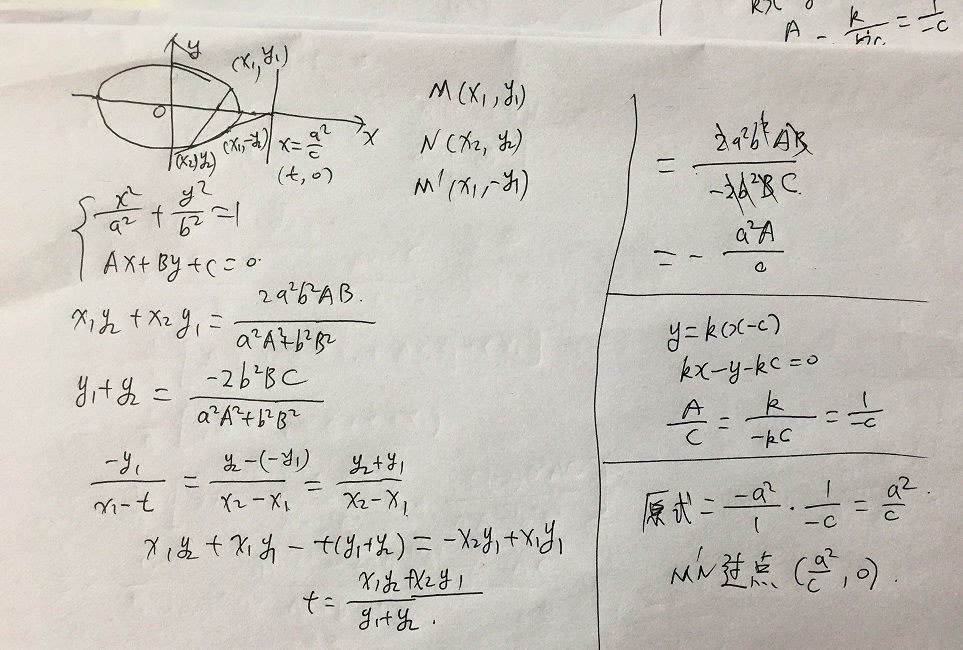 kx
A - k/-kc = 1/-c
y
(x₁, y₁)
O
(x₂, y₂)
(x₁, -y₂)
x = a²/c
x
(t, 0)
M(x₁, y₁)
N(x₂, y₂)
M'(x₁, -y₁)
x²/a² + y²/b² = 1
Ax + By + C = 0.
x₁y₂ + x₂y₁ = 2a²b²AB. / a²A² + b²B²
y₁ + y₂ = -2b²BC / a²A² + b²B²
-y₁ / x₁ - t = y₂ - (-y₁) / x₂ - x₁ = y₂ + y₁ / x₂ - x₁
x₁y₂ + x₁y₁ - t(y₁ + y₂) = -x₂y₁ + x₁y₁
t = x₁y₂ + x₂y₁ / y₁ + y₂.
= 2a²b²AB / -2b²BC.
= - a²A / c
y = k(x - c)
kx - y - kc = 0
A/C = k/-kC = 1/-c
原式 = -a²/1 · 1/-c = a²/c.
M'N 过点 (a²/c, 0).